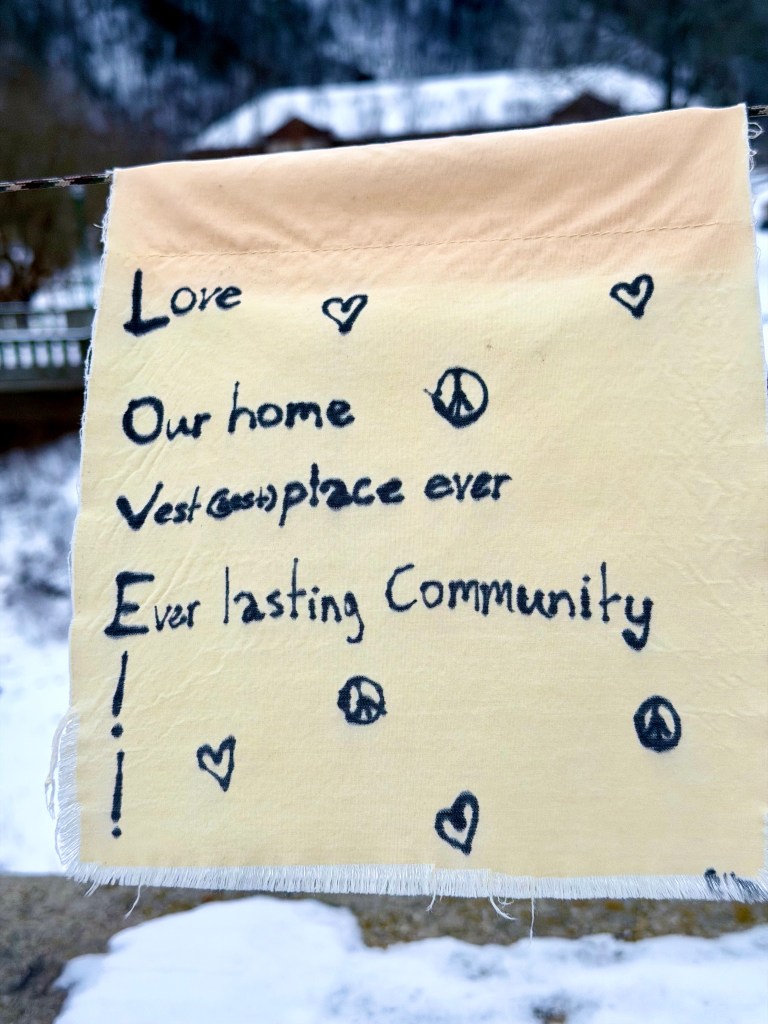 Love
Our home
Vest (Best) place ever
Ever lasting Community
!
!